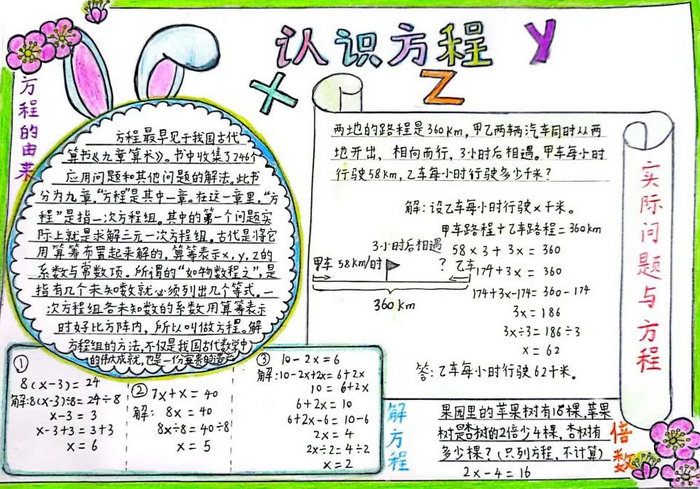 认识方程
x
y
z
方程的由来
方程最早见于我国古代
算书《九章算术》。书中收集了246个
应用问题和其他问题的解法。此书
分为九章,“方程”是其中一章。在这一章里,“方
程”是指一次方程组。其中的第一个问题实
际上就是求解三元一次方程组。古代是将它
用算筹布置起来解的,算筹表示x,y,z的
系数与常数项。所谓的“如物数程之”,是
指有几个未知数就必须列出几个等式。一
次方程组各未知数的系数用算筹表示
时好比方阵内,所以叫做方程。解
方程组的方法,不仅是我国古代数学中
的伟大成就,也是一份宝贵的遗产
①
8(x-3)=24
解:8(x-3)÷8=24÷8
x-3=3
x-3+3=3+3
x=6
② 7x+x=40
解: 8x=40
8x÷8=40÷8
x=5
③ 10-2x=6
解:10-2x+2x=6+2x
10=6+2x
6+2x=10
6+2x-6=10-6
2x=4
2x÷2=4÷2
x=2
解方程
两地的路程是360km,甲乙两辆汽车同时从两
地开出,相向而行,3小时后相遇。甲车每小时
行驶58km,乙车每小时行驶多少千米?
解:设乙车每小时行驶x千米。
甲车路程+乙车路程=360km
58×3+3x=360
174+3x=360
174+3x-174=360-174
3x=186
3x÷3=186÷3
x=62
答:乙车每小时行驶62千米。
3小时后相遇
甲车 58km/时
? 乙车
360km
实际问题与方程
果园里的苹果树有16棵,苹果
树是杏树的2倍少4棵,杏树有
多少棵?(只列方程,不计算)
2x-4=16
倍数